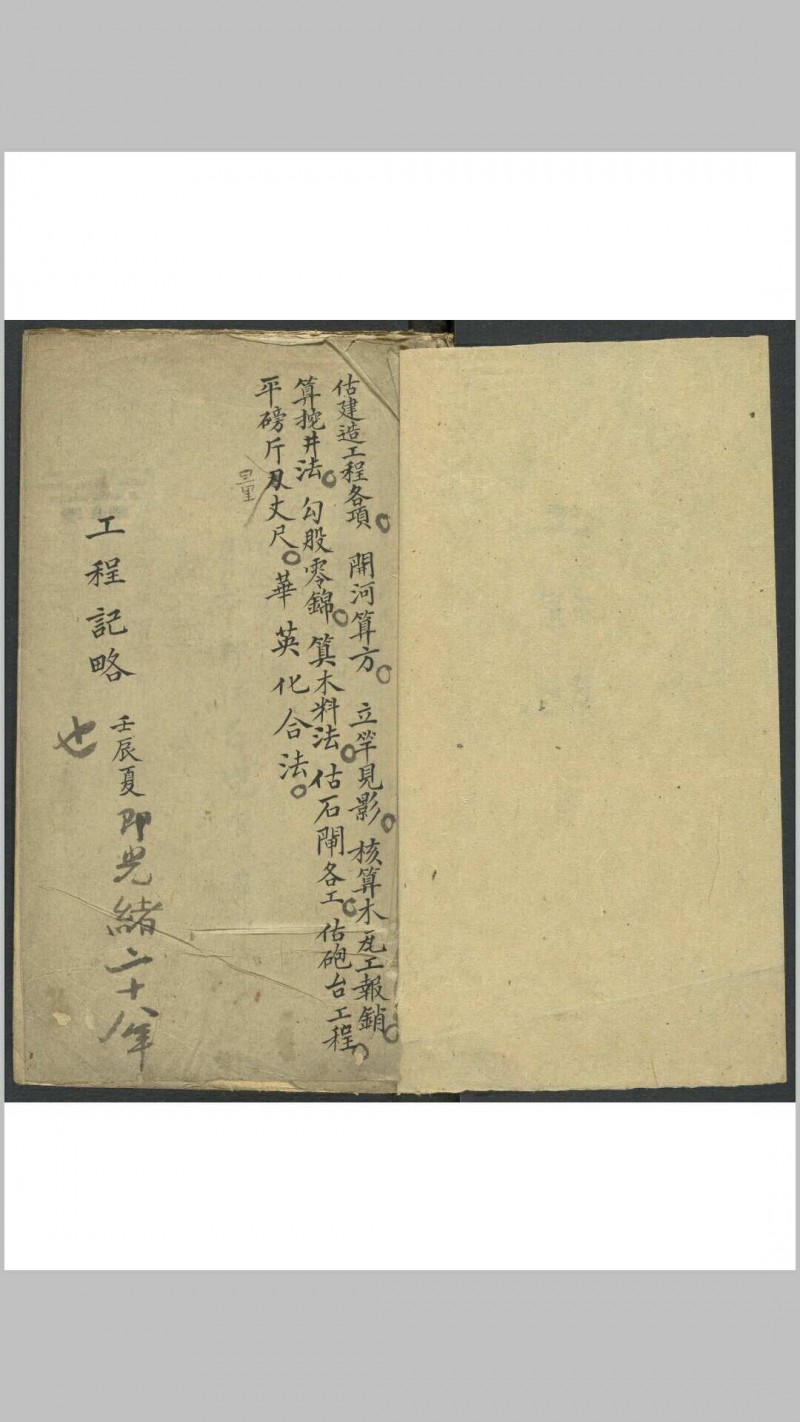 估建造工程各項。開河算方。立竿見影。核算木瓦工報銷。
算挖井法。勾股零錦。算木料法。估石閘各工。估砲台工程。
平磅斤及丈尺。華英化合法。
量
工程記略
壬辰夏即光緒二十八年
也